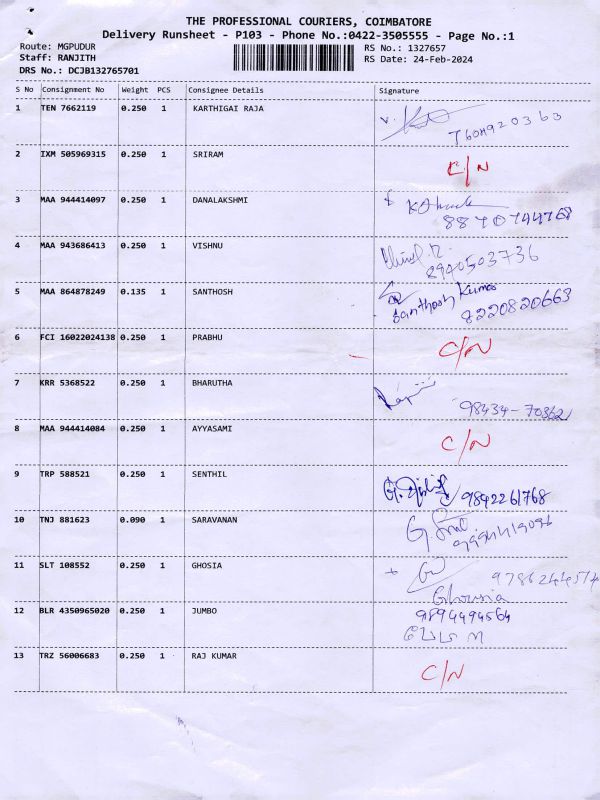 THE PROFESSIONAL COURIERS, COIMBATORE
Delivery Runsheet - P103 - Phone No.:0422-3505555 - Page No.:1
Route: MGPUDUR RS No.: 1327657
Staff: RANJITH RS Date: 24-Feb-2024
DRS No.: DCJB132765701
S No Consignment No Weight PCS Consignee Details Signature
1 TEN 7662119 0.250 1 KARTHIGAI RAJA
2 IXM 505969315 0.250 1 SRIRAM C/N
3 MAA 944414097 0.250 1 DANALAKSHMI
8870744768
4 MAA 943686413 0.250 1 VISHNU
8940503736
5 MAA 864878249 0.135 1 SANTHOSH Santhosh Kumar
8220820663
6 FCI 16022024138 0.250 1 PRABHU C/N
7 KRR 5368522 0.250 1 BHARUTHA
98434-70362
8 MAA 944414084 0.250 1 AYYASAMI C/N
9 TRP 588521 0.250 1 SENTHIL 9842261768
10 TNJ 881623 0.090 1 SARAVANAN
11 SLT 108552 0.250 1 GHOSIA 9786244574
Ghousia
12 BLR 4350965020 0.250 1 JUMBO 9894494564
13 TRZ 56006683 0.250 1 RAJ KUMAR C/N